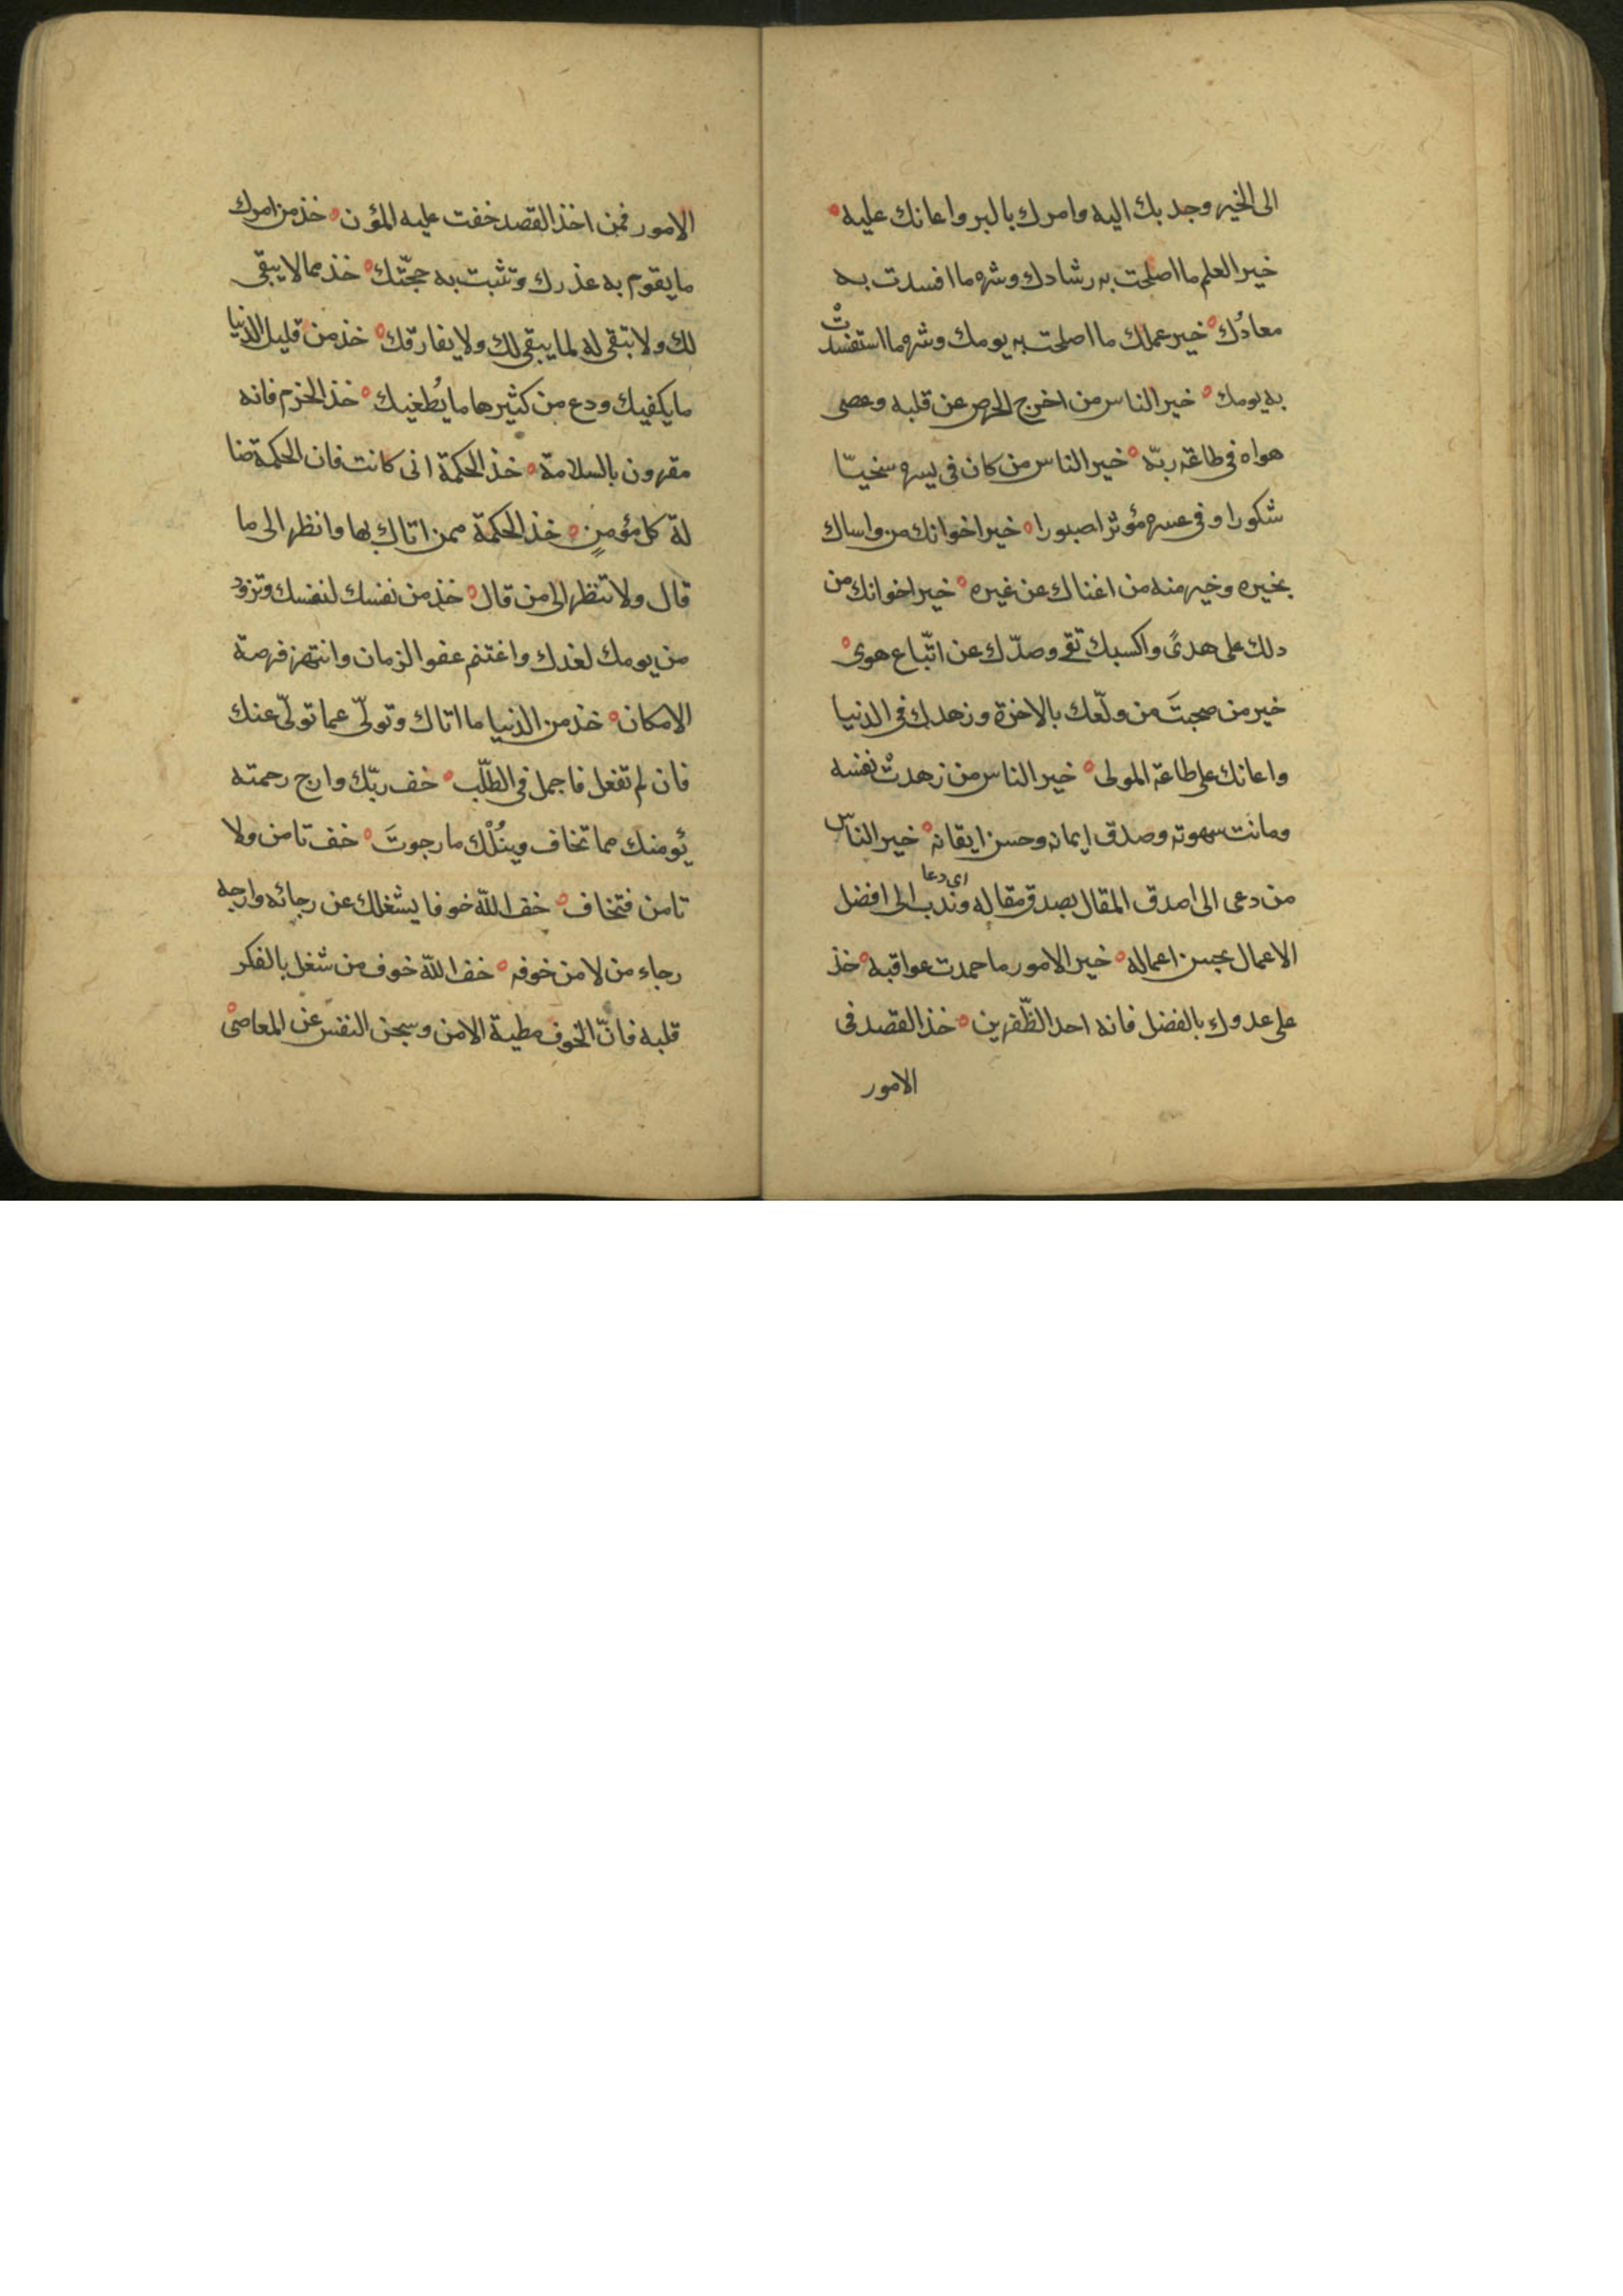 الى الخير وجد بك اليه وامرك بالبر واعانك عليه
خير العلم ما اصلحت به رشادك وشره ما افسدت به
معادك خير عملك ما اصلحت به يومك وشره ما استفسدت
به يومك خير الناس من اخرج الحرص عن قلبه وعصى
هواه في طاعة ربّه خير الناس من كان في يسره سخيّا
شكورا وفى عسره مؤثرا صبورا خير اخوانك من واساك
بخيره وخير منه من اغناك عن غيره خير اخوانك من
دلك على هدىً واكسبك تقى وصدّك عن اتّباع هوى
خير من صحبتَ من ولّعك بالاخرة وزهدك في الدنيا
واعانك على طاعة المولى خير الناس من زهدتْ نفسه
وماتت سهوته وصدق ايمانه وحسن ايقانه خير الناس
اى دعا
من دعى الى اصدق المقال بصدق مقاله وندب الى افضل
الاعمال بحسن اعماله خير الامور ما حمدت عواقبه خذ
على عدوك بالفضل فانه احد الظّفرين خذ القصد فى
الامور
الامور فمن اخذ القصد خفت عليه المؤن خذ من امرك
ما يقوم به عذرك وتثبت به حجّتك خذ مما لا يبقى
لك ولا تبقى له لما يبقى لك ولا يفارقك خذ من قليل الدنيا
ما يكفيك ودع من كثيرها ما يُطغيك خذ الحزم فانه
مقرون بالسلامة خذ الحكمة انى كانت فان الحكمة ضا
لة كل مؤمنٍ خذ الحكمة ممن اتاك بها وانظر الى ما
قال ولا تنظر الى من قال خذ من نفسك لنفسك وتزود
من يومك لغدك واغتنم عفو الزمان وانتهز فرصة
الامكان خذ من الدنيا ما اتاك وتولّى عما تولّى عنك
فان لم تفعل فاجمل في الطلّب خف ربّك وارج رحمته
يؤمنك مما تخاف وينُلْك ما رجوتَ خف تامن ولا
تامن فتخاف خف اللّه خوفا يشغلك عن رجائه وارجه
رجاء من لا من خوفه خف اللّه خوف من شغل بالفكر
قلبه فانّ الخوف مطية الامن وسجن النفس عن المعاصى